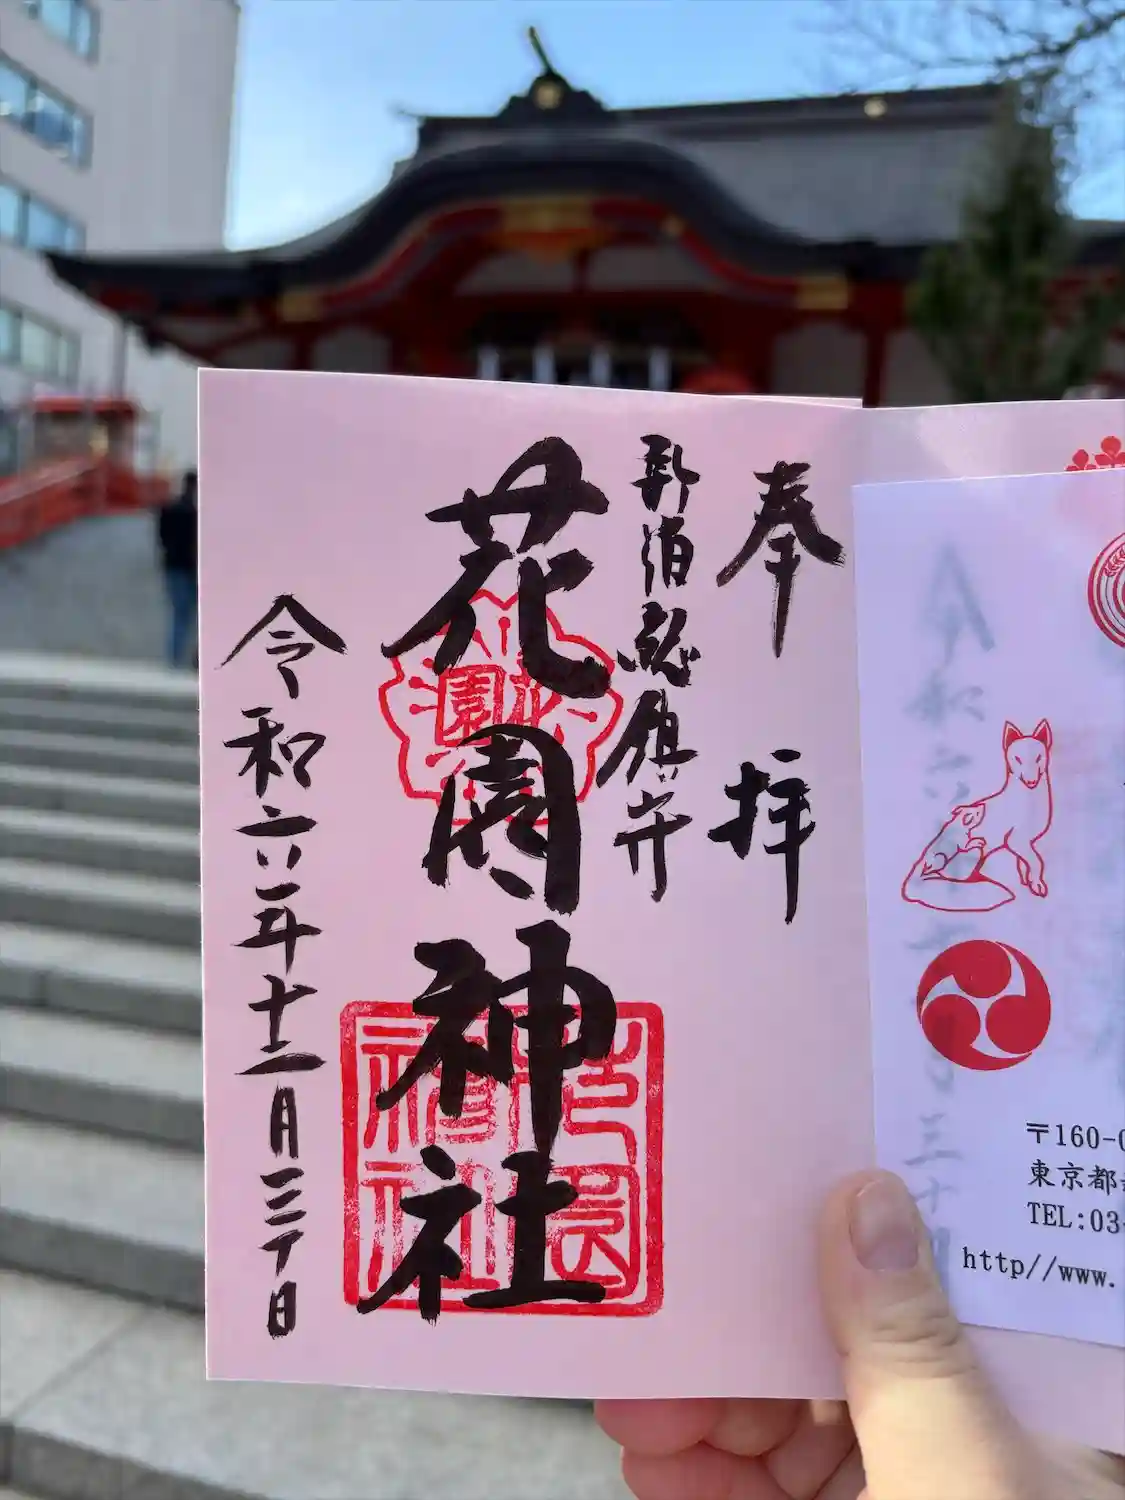 奉拝
新宿総鎮守
花園神社
令和六年十一月三十日
花園
花園神社
〒160-0
東京都
TEL:03-
http//www.